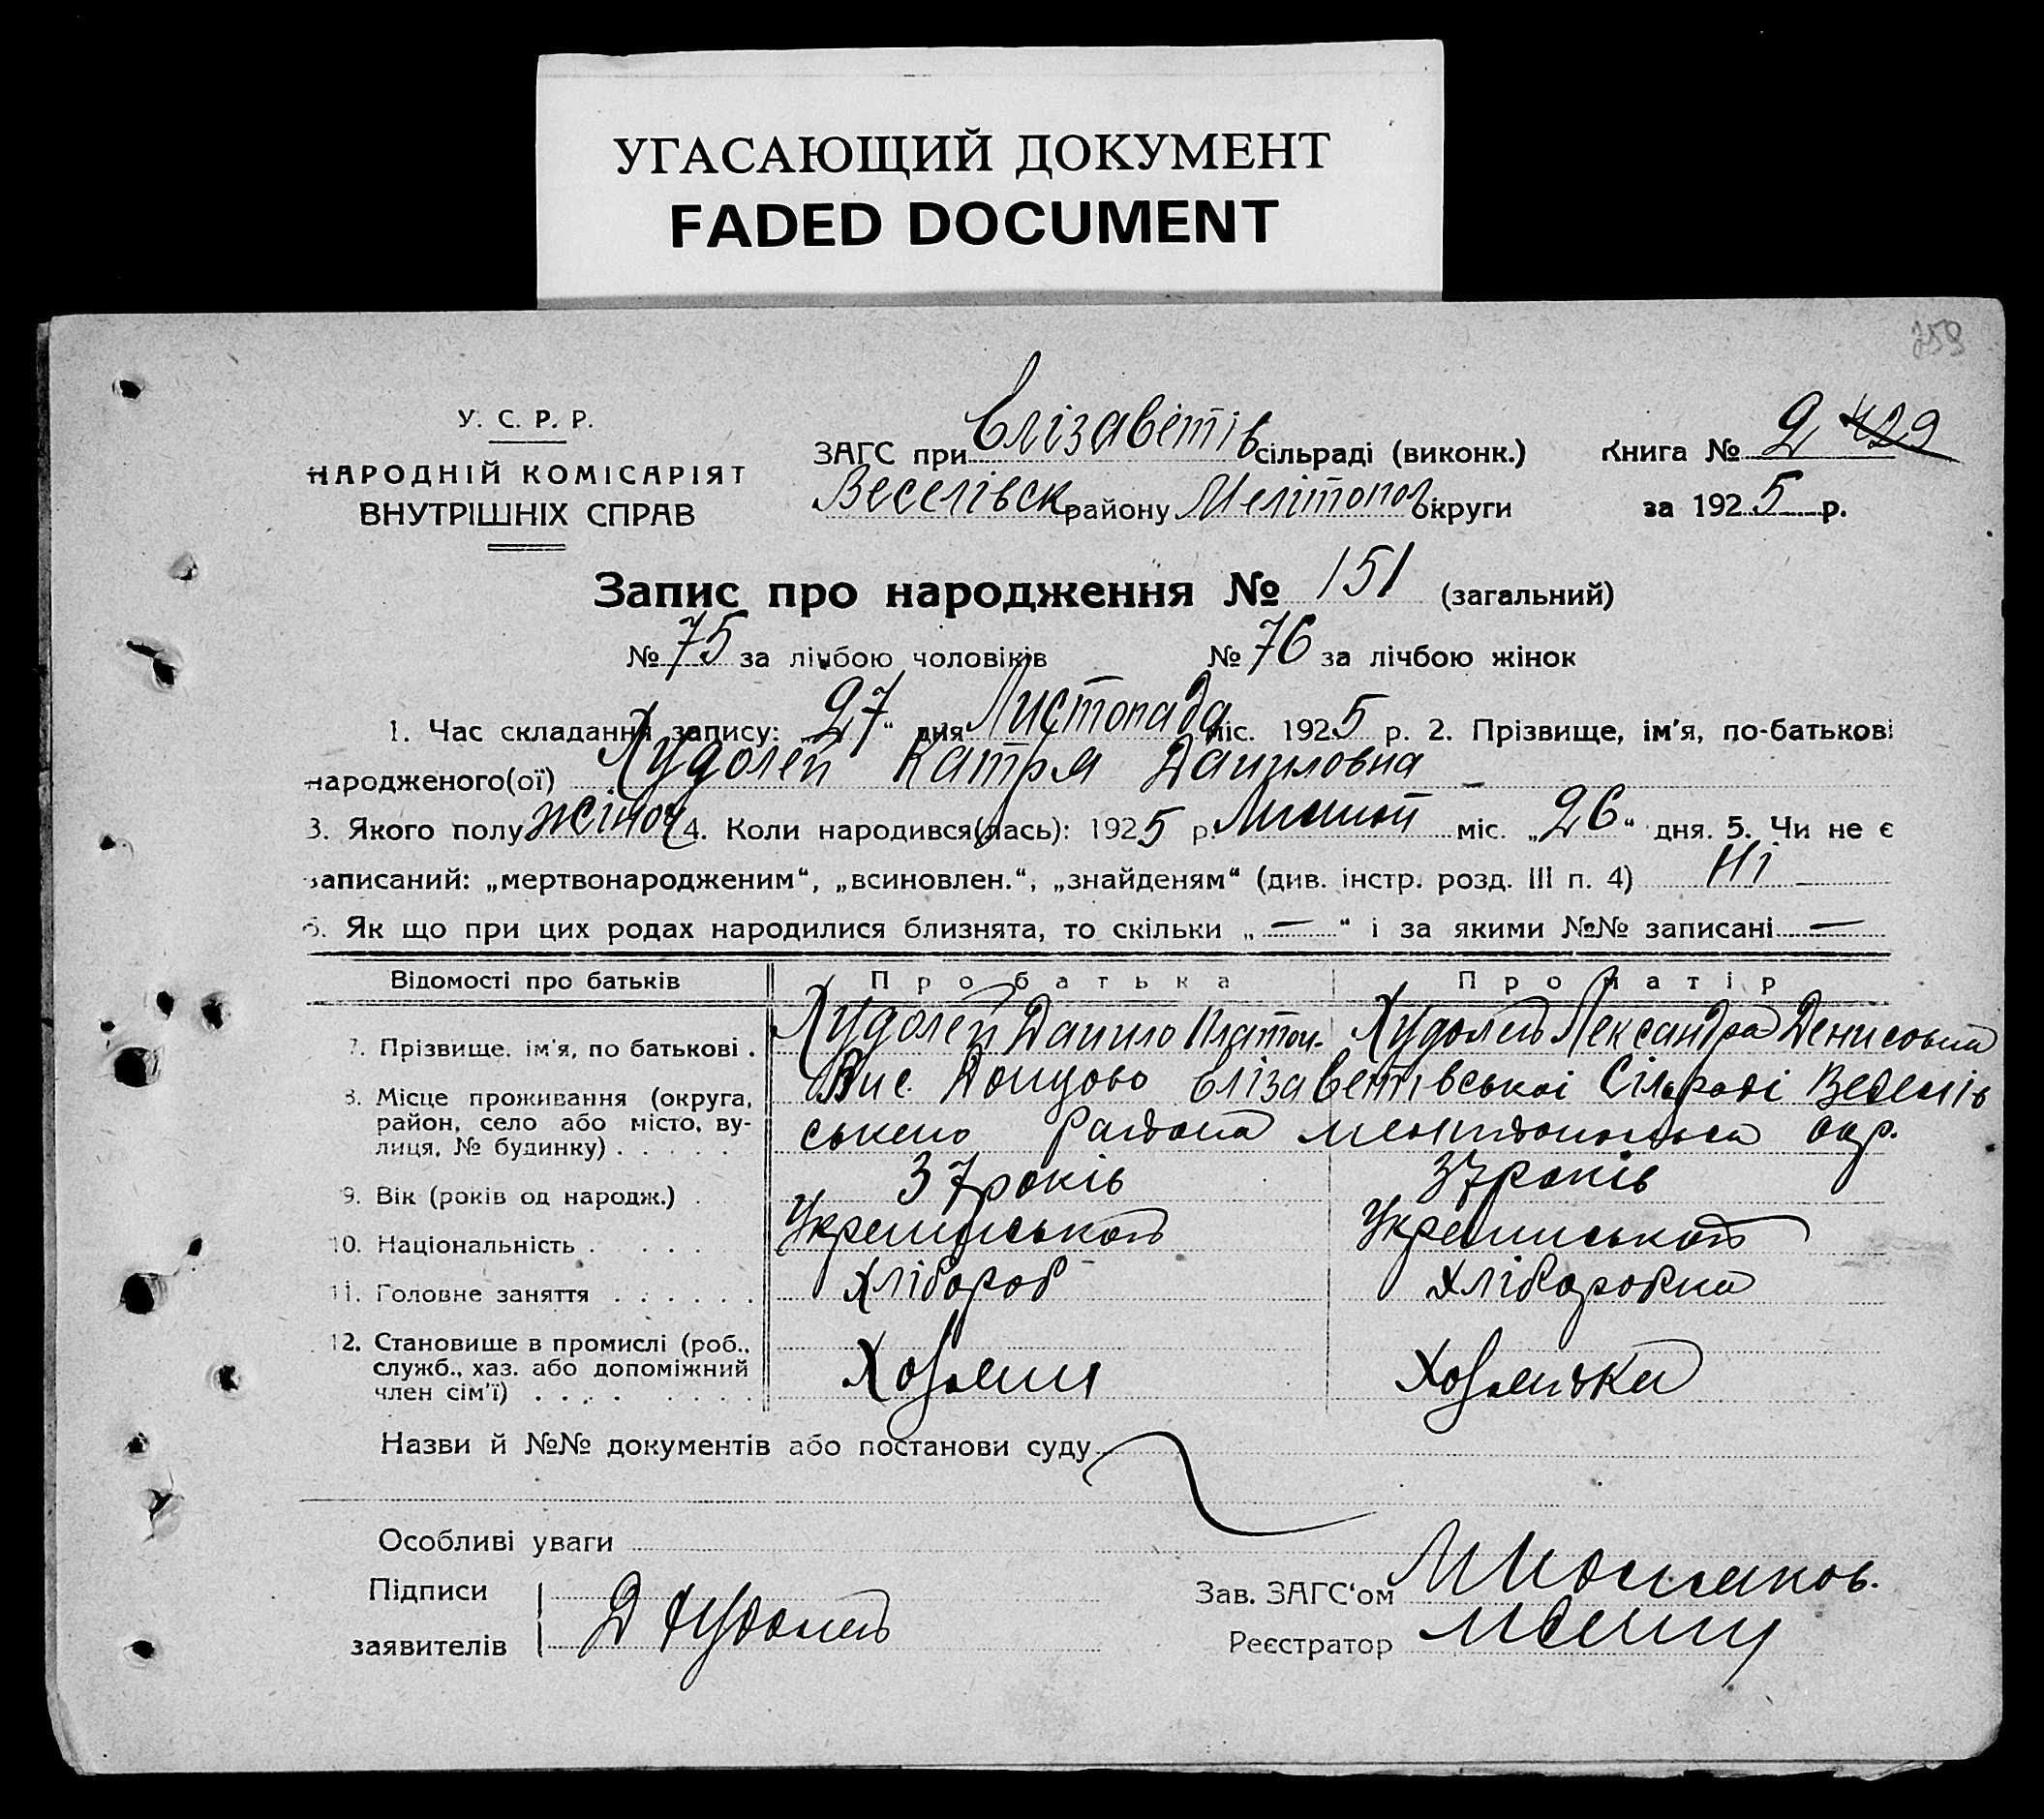 УГАСАЮЩИЙ ДОКУМЕНТ
FADED DOCUMENT
259
У. С. Р. Р.
НАРОДНІЙ КОМІСАРІЯТ
ВНУТРІШНІХ СПРАВ
ЗАГС при Єлізаветів сільраді (виконк.)
Веселівск району Мелітопол округи
Книга № 2 429
за 1925 р.
Запис про народження № 151 (загальний)
№ 75 за лічбою чоловіків № 76 за лічбою жінок
1. Час складання запису: „27“ дня Листопада міс. 1925 р. 2. Прізвище, ім'я, по-батькові
народженого(ої) Худолей Катря Даниловна
3. Якого полу жіноч 4. Коли народився(лась): 1925 р. Листоп міс. „26“ дня. 5. Чи не є
записаний: „мертвонародженим“, „всиновлен.“, „знайденям“ (див. інстр. розд. III п. 4) Ні
6. Як що при цих родах народилися близнята, то скільки „—“ і за якими №№ записані —
Відомості про батьків Про батька Про матір
7. Прізвище, ім'я, по батькові . Худолей Данило Платон. Худолей Лександра Денисовна
8. Місце проживання (округа, район, село або місто, вулиця, № будинку) . . . . . Єлізаветівської Сільраді Веселів
ського района мелитопольска окр.
9. Вік (років од народж.) . 37 років 37 років
10. Національність . . . . Украинськой Украинськой
11. Головне заняття . . . . . . Хлібороб Хліборобка
12. Становище в промислі (роб., служб., хаз. або допоміжний член сім'ї) . . . . . . . . Хозяин Хозяйка
Назви й №№ документів або постанови суду
Особливі уваги
Підписи
заявителів Д Худолей
Зав. ЗАГС'ом
Реєстратор